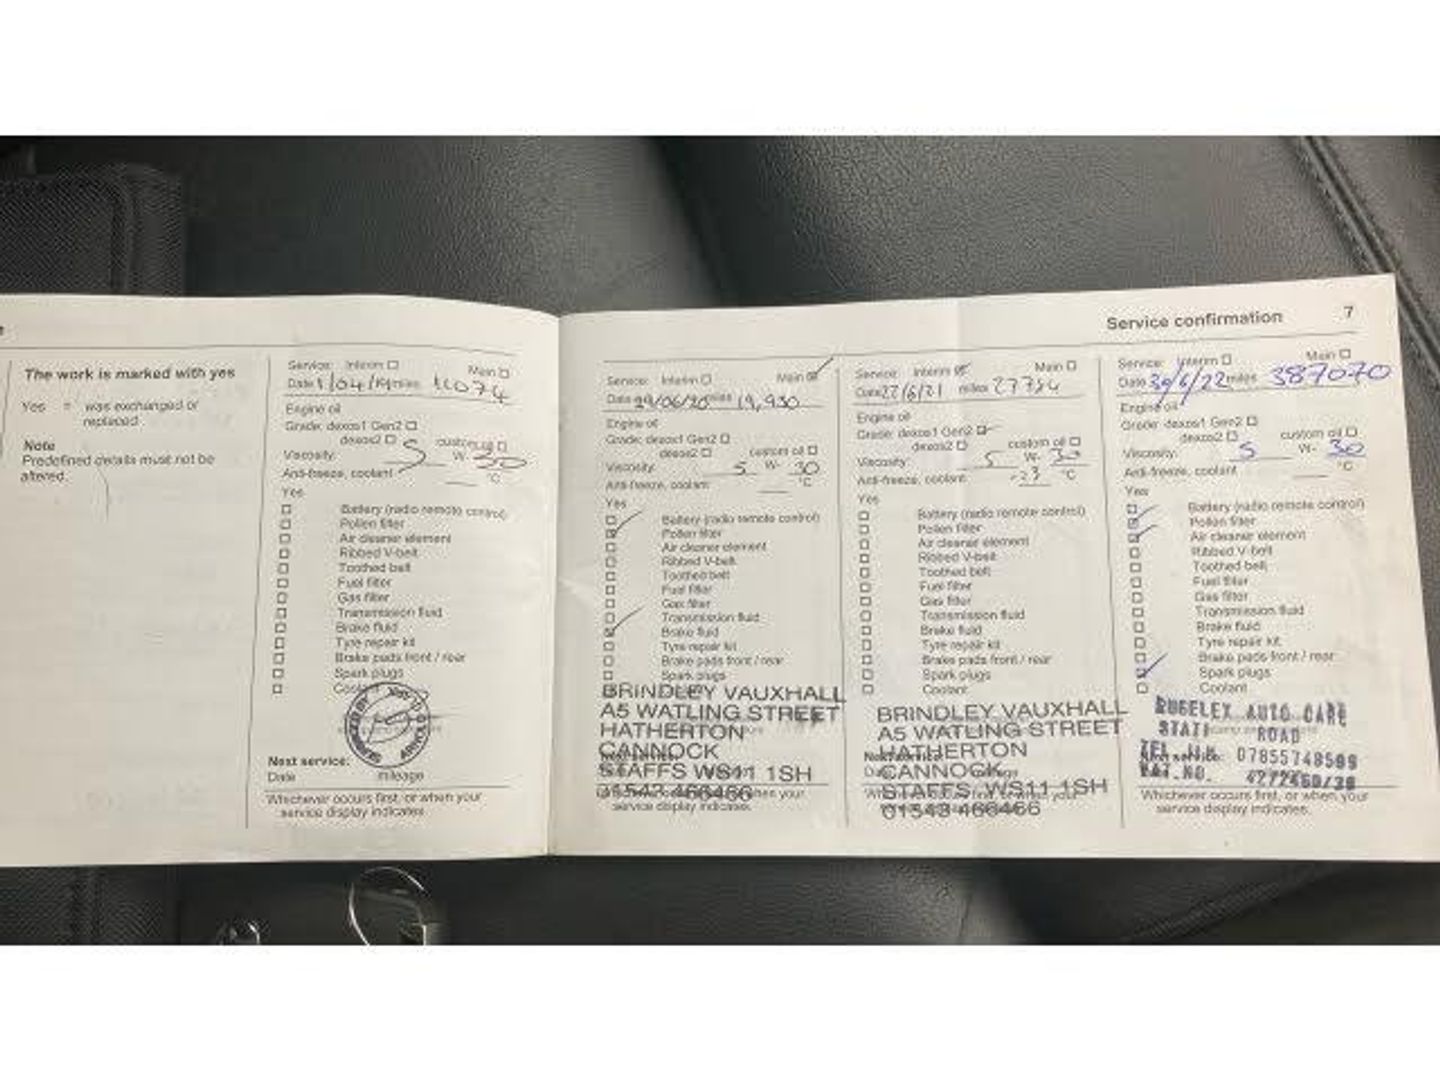 Service confirmation 7
The work is marked with yes
Yes = was exchanged or
replaced
Note
Predefined details must not be
altered.
Service: Interim Main
Date 1/04/19 miles 11074
Engine oil
Grade: dexos1 Gen2
dexos2 custom oil
Viscosity: 5 W- 30
Anti-freeze, coolant °C
Yes
Battery (radio remote control)
Pollen filter
Air cleaner element
Ribbed V-belt
Toothed belt
Fuel filter
Gas filter
Transmission fluid
Brake fluid
Tyre repair kit
Brake pads front / rear
Spark plugs
Next service:
Date mileage
Whichever occurs first, or when your
service display indicates.
Service: Interim Main
Date 29/06/20 miles 19,930
Engine oil
Grade: dexos1 Gen2
dexos2 custom oil
Viscosity: 5 W- 30
Anti-freeze, coolant °C
Yes
Battery (radio remote control)
Pollen filter
Air cleaner element
Ribbed V-belt
Toothed belt
Fuel filter
Gas filter
Transmission fluid
Brake fluid
Tyre repair kit
Brake pads front / rear
Spark plugs
BRINDLEY VAUXHALL
A5 WATLING STREET
HATHERTON
CANNOCK
STAFFS WS11 1SH
01543 466466
service display indicates.
Service: Interim Main
Date 22/6/21 miles 27784
Engine oil
Grade: dexos1 Gen2
dexos2 custom oil
Viscosity: 5 W- 30
Anti-freeze, coolant -23 °C
Yes
Battery (radio remote control)
Pollen filter
Air cleaner element
Ribbed V-belt
Toothed belt
Fuel filter
Gas filter
Transmission fluid
Brake fluid
Tyre repair kit
Brake pads front / rear
Spark plugs
Coolant
BRINDLEY VAUXHALL
A5 WATLING STREET
HATHERTON
CANNOCK
STAFFS WS11 1SH
01543 466466
service display indicates.
Service: Interim Main
Date 30/6/22 miles 387070
Engine oil
Grade: dexos1 Gen2
dexos2 custom oil
Viscosity: 5 W- 30
Anti-freeze, coolant °C
Yes
Battery (radio remote control)
Pollen filter
Air cleaner element
Ribbed V-belt
Toothed belt
Fuel filter
Gas filter
Transmission fluid
Brake fluid
Tyre repair kit
Brake pads front / rear
Spark plugs
Coolant
AUTO CARE
ROAD
07855748599
VAT. NO.
Whichever occurs first, or when your
service display indicates.